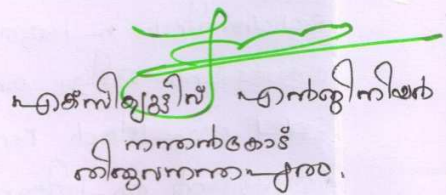 എക്സിക്യൂട്ടീവ് എൻജിനിയർ
നന്തൻകോട്
തിരുവനന്തപുരം.